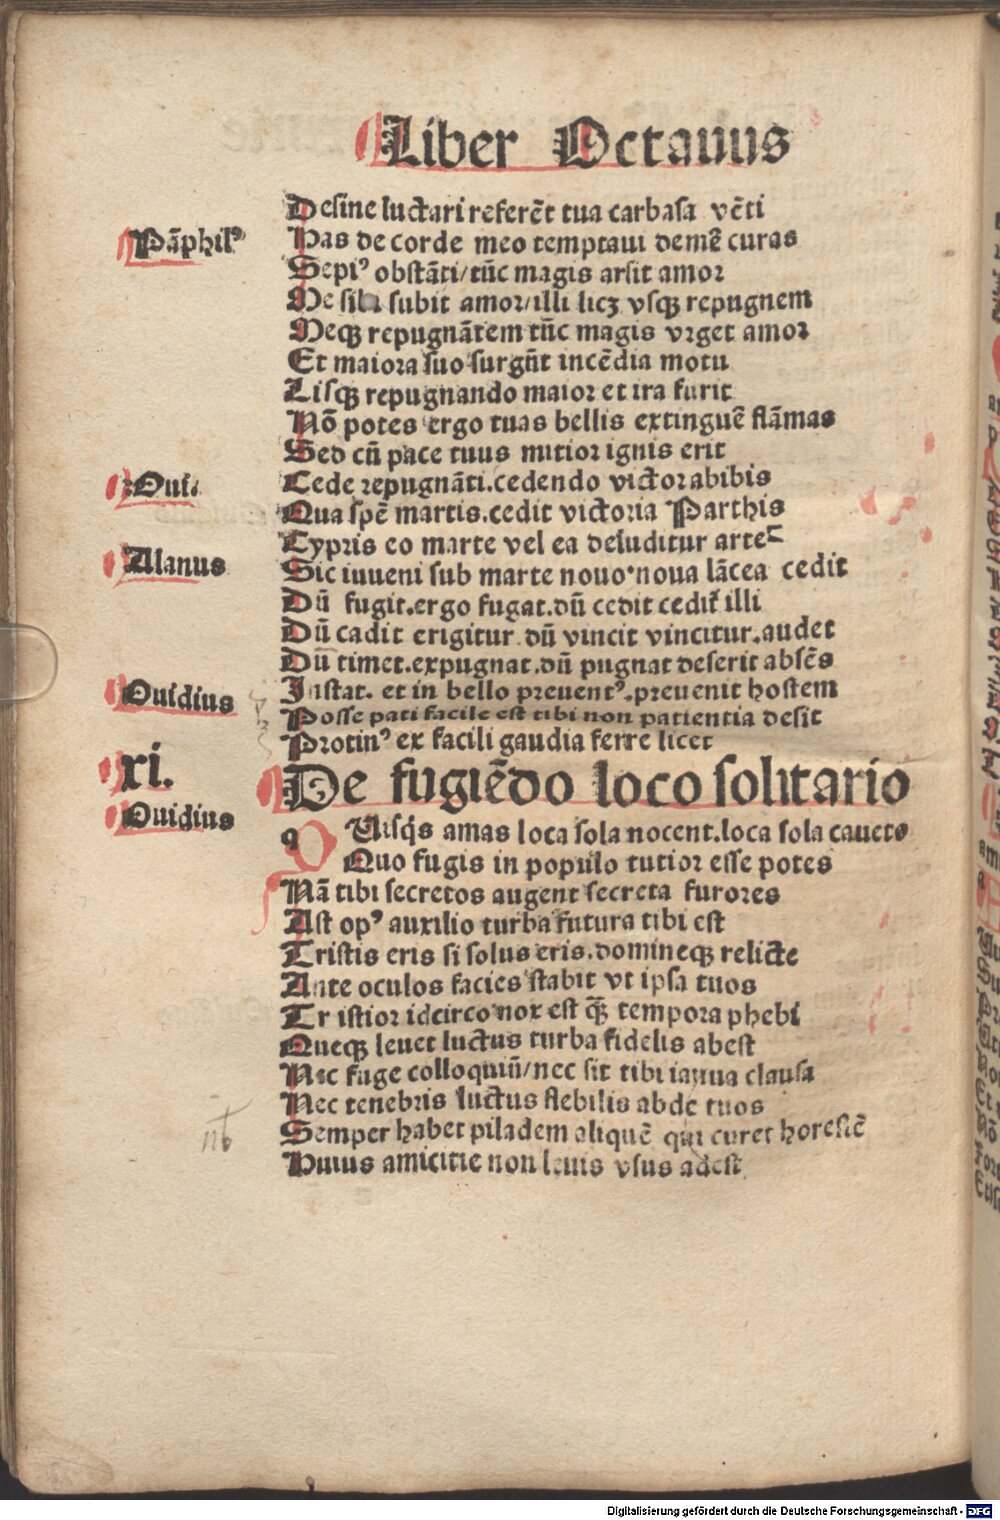 Liber Octauus
Desine luctari referēt tua carbasa vēti
Pāphilꝰ
Has de corde meo temptaui demē curas
Sepiꝰ obstāti/tūc magis arsit amor
Me subit amor/illi licꝫ vsqꝫ repugnem
Meqꝫ repugnātem tūc magis vrget amor
Et maiora suo surgūt incēdia motu
Lisqꝫ repugnando maior et ira furit
Nō potes ergo tuas bellis extinguē flāmas
Sed cū pace tuus mitior ignis erit
Oui.
Cede repugnāti.cedendo victor abibis
Qua spē martis.cedit victoria Parthis
Alanus
Cypris eo marte vel ea deluditur arte
Sic iuueni sub marte nouo·noua lācea cedit
Dū fugit.ergo fugat.dū cedit cedit̄ illi
Dū cadit erigitur dū vincit vincitur.audet
Dū timet.expugnat.dū pugnat deserit absēs
Ouidius
Instat. et in bello preuentꝰ.preuenit hostem
Posse pati facile est tibi non patientia desit
Protinꝰ ex facili gaudia ferre licet
xi.
De fugiēdo loco solitario
Ouidius
q Uisq̇s amas loca sola nocent.loca sola caueto
Quo fugis in populo tutior esse potes
Nā tibi secretos augent secreta furores
Ast opꝰ auxilio turba futura tibi est
Tristis eris si solus eris.domineqꝫ relicte
Ante oculos facies stabit vt ipsa tuos
Tr istior idcirco nox est q̄ꝫ tempora phebi
Queqꝫ leuet luctus turba fidelis abest
Nec fuge colloquiū/nec sit tibi ianua clausa
Nec tenebris luctus flebilis abde tuos
Semper habet piladem aliquē qui curet horestē
Huius amicitie non leuis vsus adest
Digitalisierung gefördert durch die Deutsche Forschungsgemeinschaft - DFG